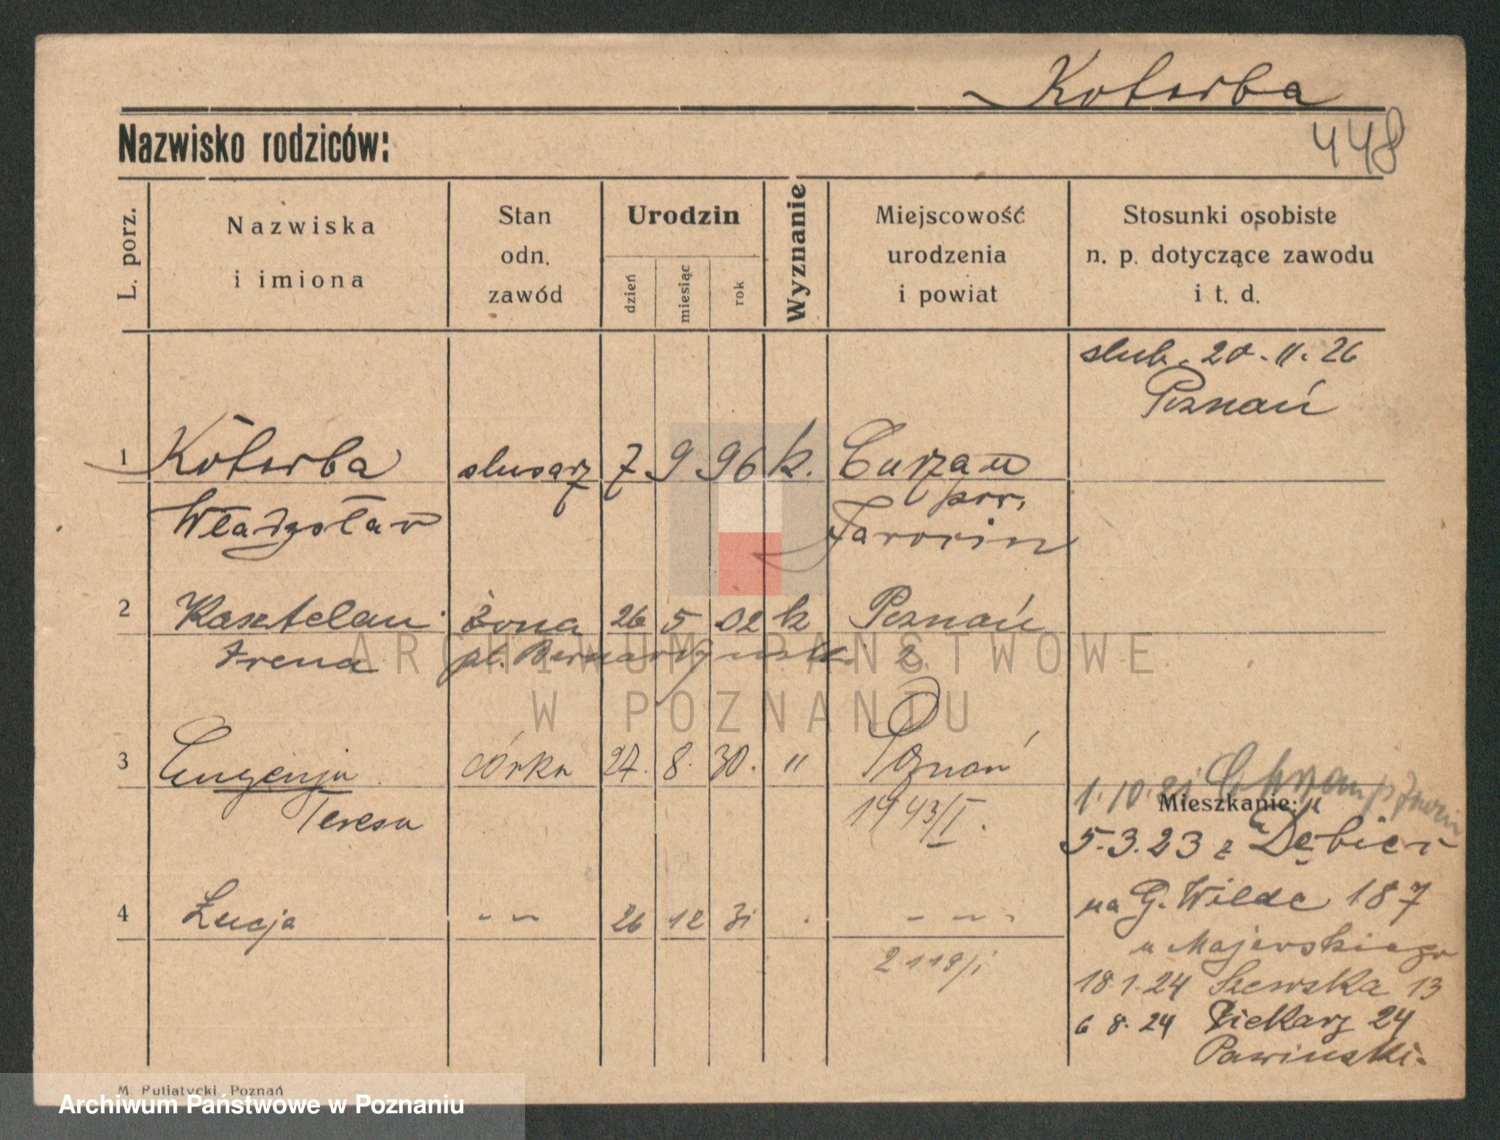 Koterba
448
Nazwisko rodziców:
L. porz.
Nazwiska
i imiona
Stan
odn.
zawód
Urodzin
dzień
miesiąc
rok
Wyznanie
Miejscowość
urodzenia
i powiat
Stosunki osobiste
n. p. dotyczące zawodu
i t. d.
slub. 20.11.26
Poznań
1 Kotérba slusarz 7 9 96 k.
Władysław
pow.
Jarocin
2 Kasztelan żona 26 5 02 k Poznań
Irena pl. Bernardyński 2
3 Eugenja córka 27. 8. 30. " Poznań
Teresa 1943/I.
1.10.21
Mieszkanie:
5.3.23 z Dębiec
na G. Wilde 187
u Majerskiego
4 Łucja - - 26 12 31 . - - .
2119/I
18.1.24 Szewska 13
6 8.24 Piekary 24
Pawinski.
M. Putiatycki, Poznań
ARCHIWUM PAŃSTWOWE
W POZNANIU
Archiwum Państwowe w Poznaniu